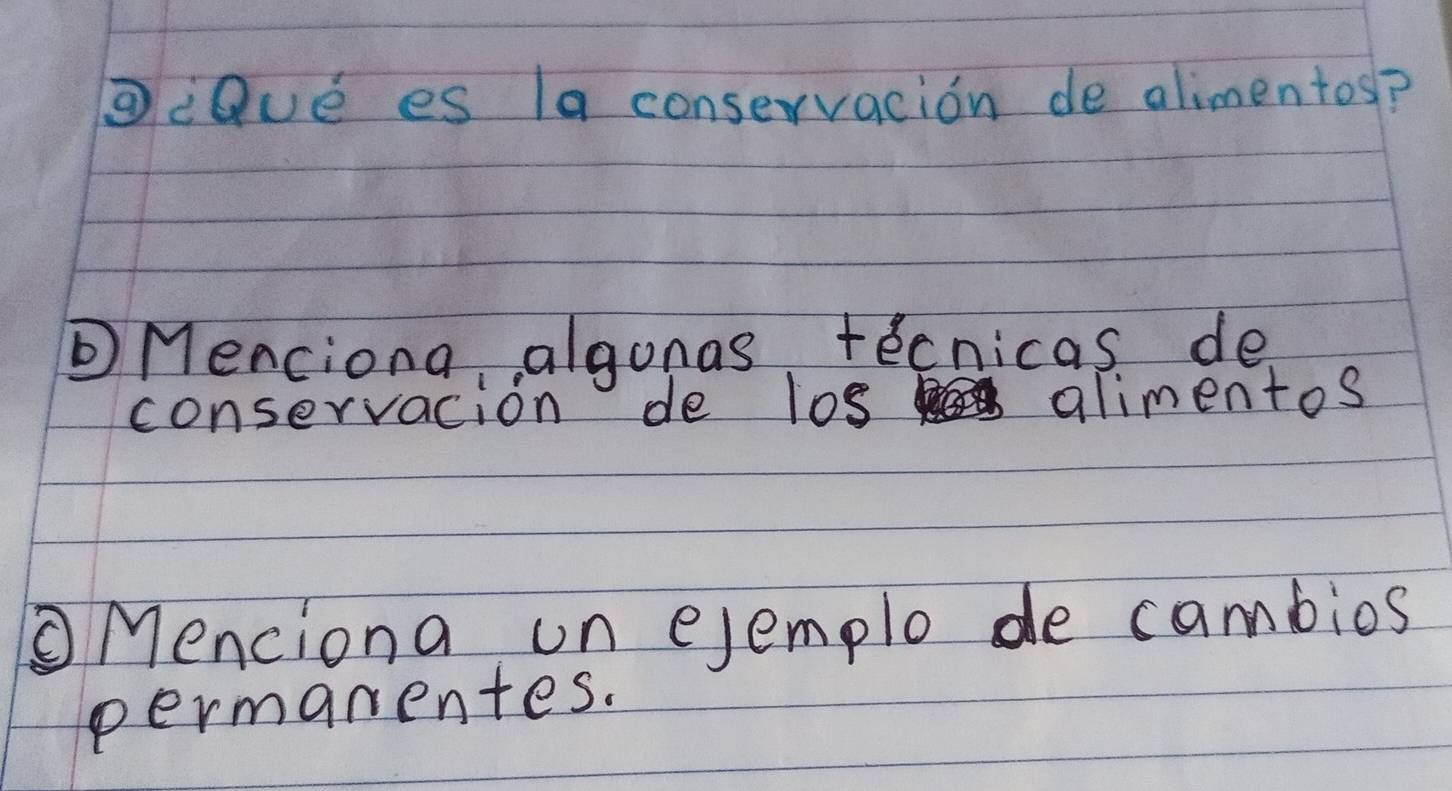 a ¿Qué es la conservación de alimentos?
b Menciona algunas técnicas de
conservación de los alimentos
c Menciona un ejemplo de cambios
permanentes.